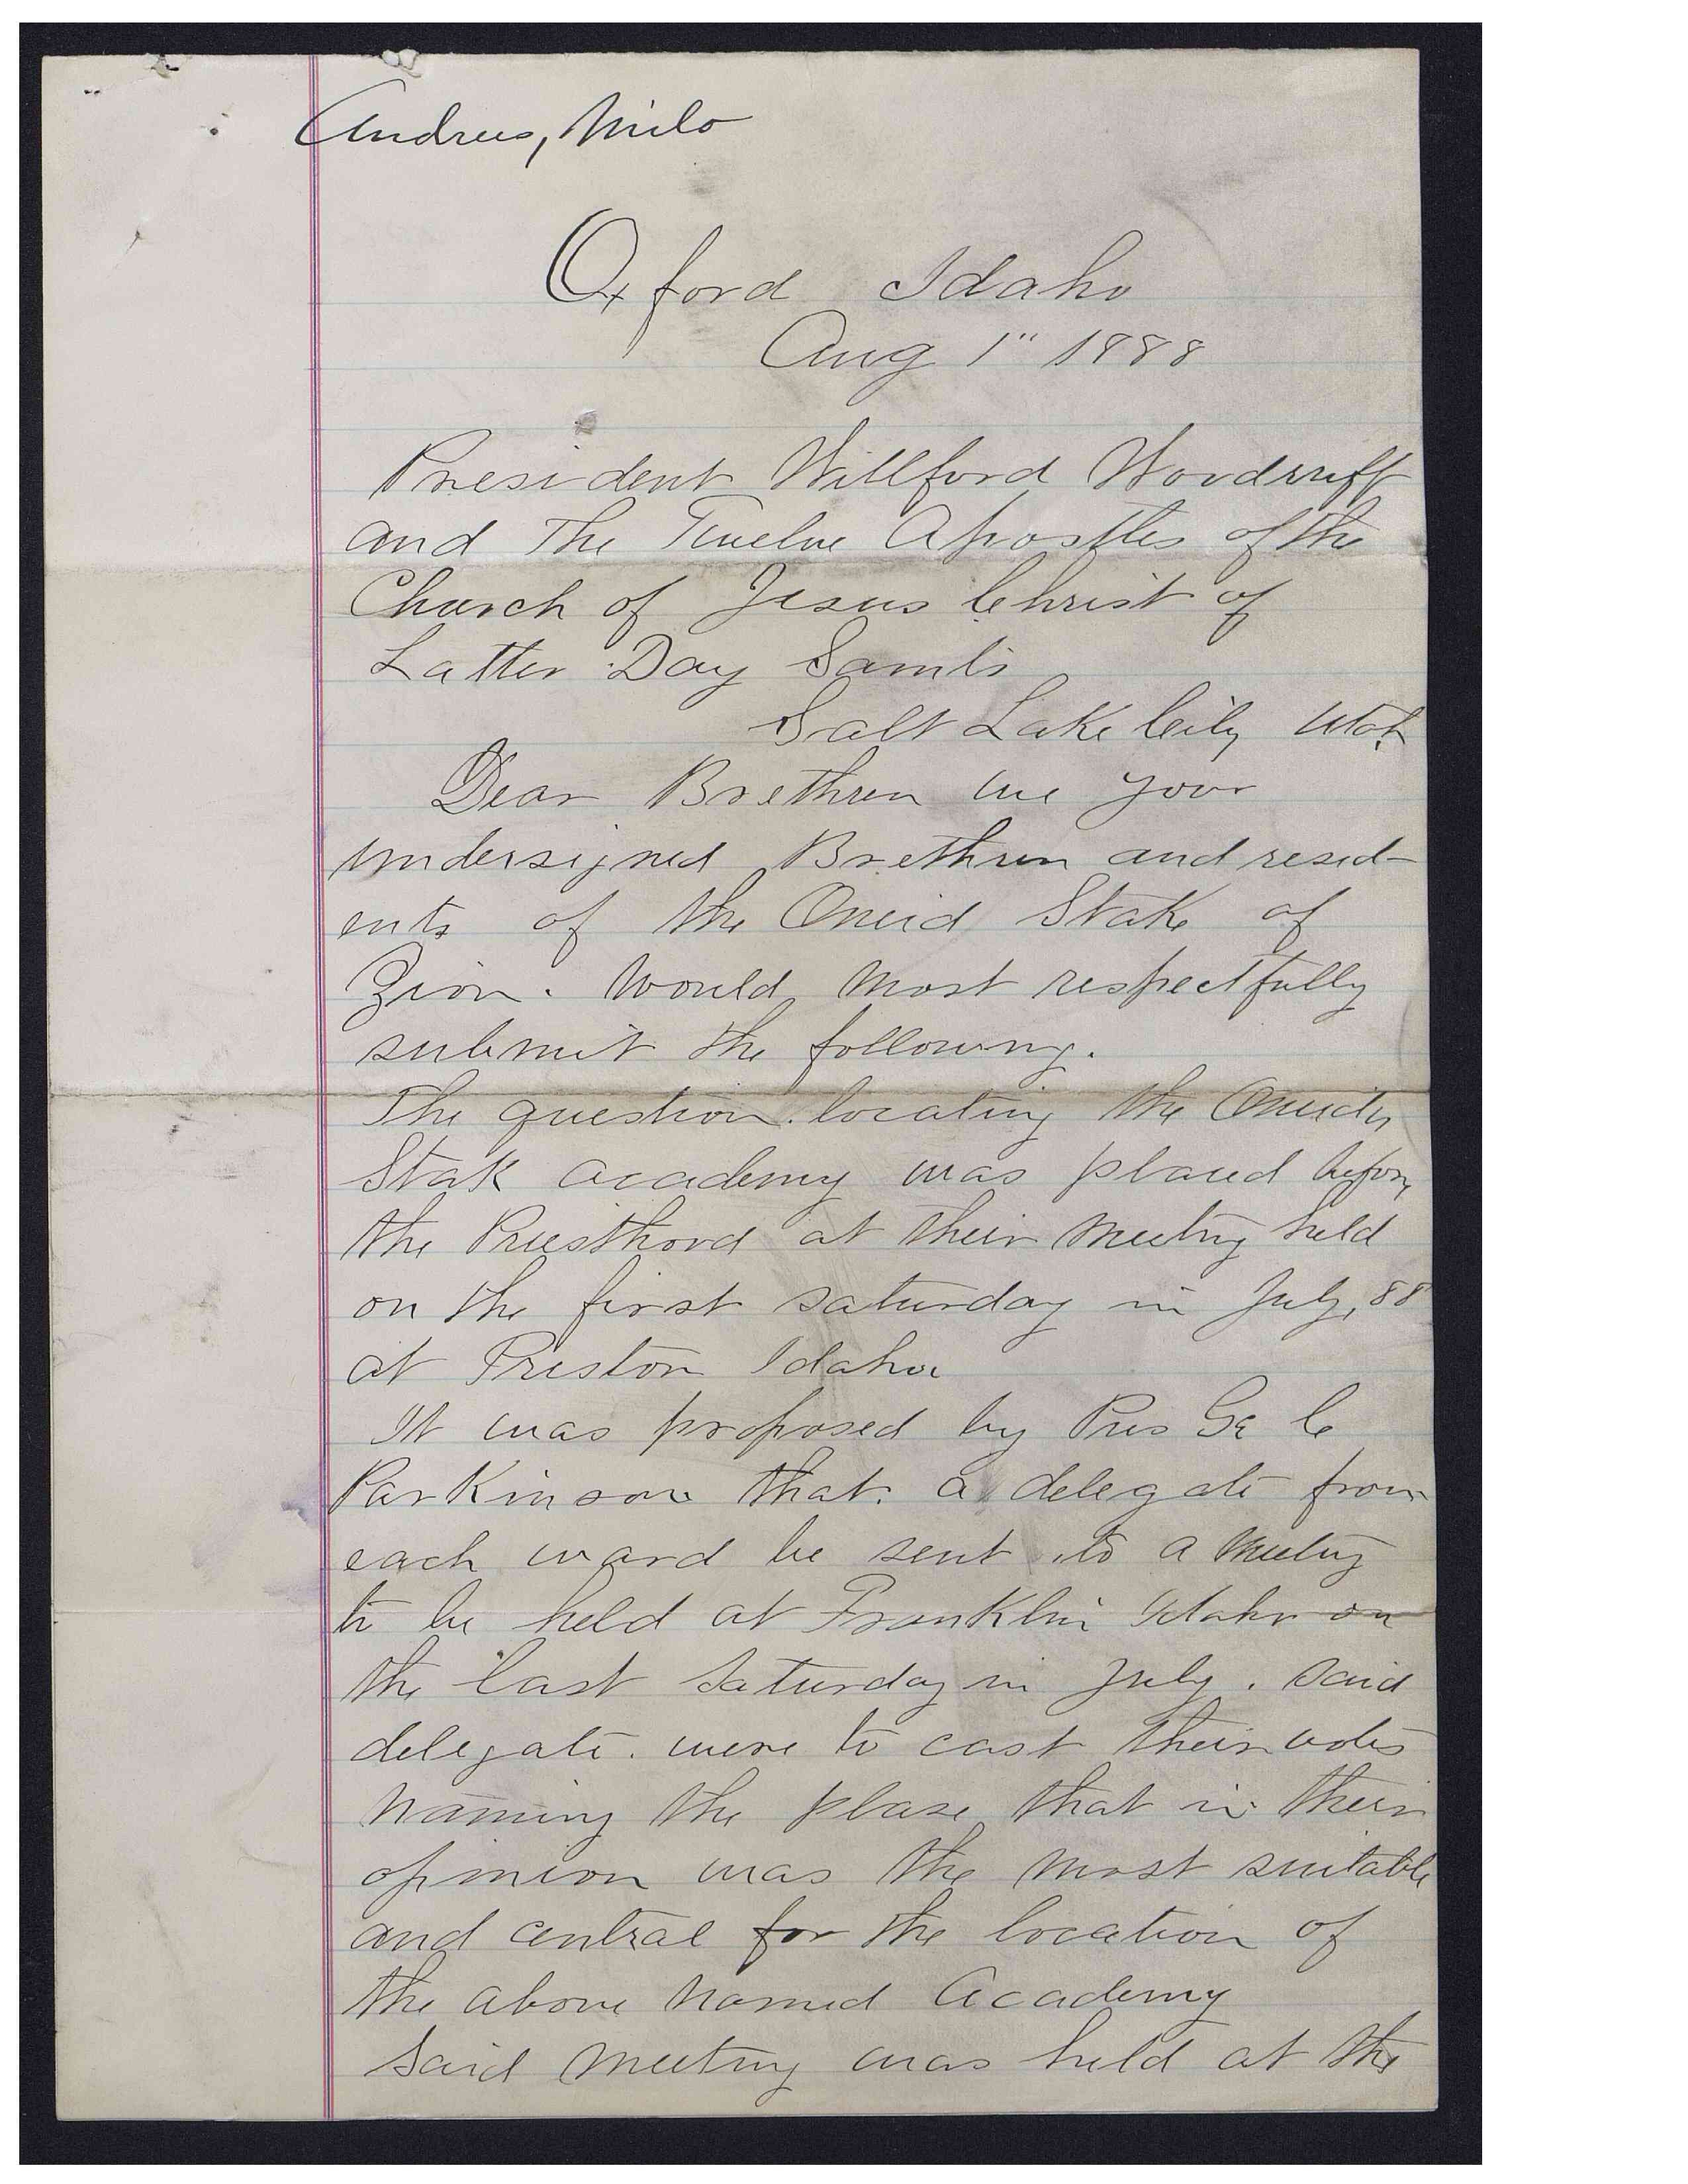 Andrus, Milo
Oxford Idaho
Aug 1" 1888
President Willford Woodruff
and The Twelve Apostles of the
Church of Jesus Christ of
Latter Day Saints
Salt Lake City Utah
Dear Brethren we your
undersigned Brethren and resid-
ents of the Oneid Stake of
Zion. would most respectfully
submit the following.
The question. locating the Oneida
Stak academy was placed before
the Priesthood at their meeting held
on the first saturday in July, 88
at Preston Idaho
It was proposed by Pres Ge C
Parkinson that. a delegate from
each ward be sent to a meeting
to be held at Franklin Idaho on
the last Saturday in July. said
delegate. were to cast their votes
naming the plase that in their
opinion was the most suitable
and central for the location of
the above named Academy
Said meeting was held at the